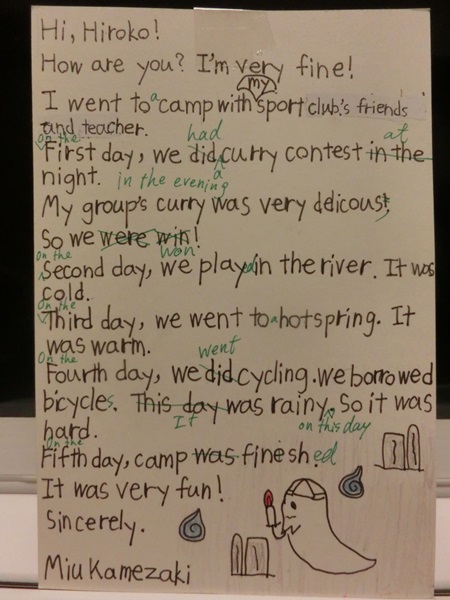 Hi, Hiroko!
How are you? I'm very fine!
my
I went to a camp with sport club's friends
and teacher.
on the had at
First day, we did a curry contest in the
night. in the evening
My group's curry was very delicous!
So we were win!
won
on the
Second day, we played in the river. It was
cold.
On the
Third day, we went to a hotspring. It
was warm.
On the went
Fourth day, we did cycling. we borrowed
bicycles. This day was rainy, So it was
hard. It on this day
On the
Fifth day, camp was finished
It was very fun!
Sincerely.
Miu Kamezaki